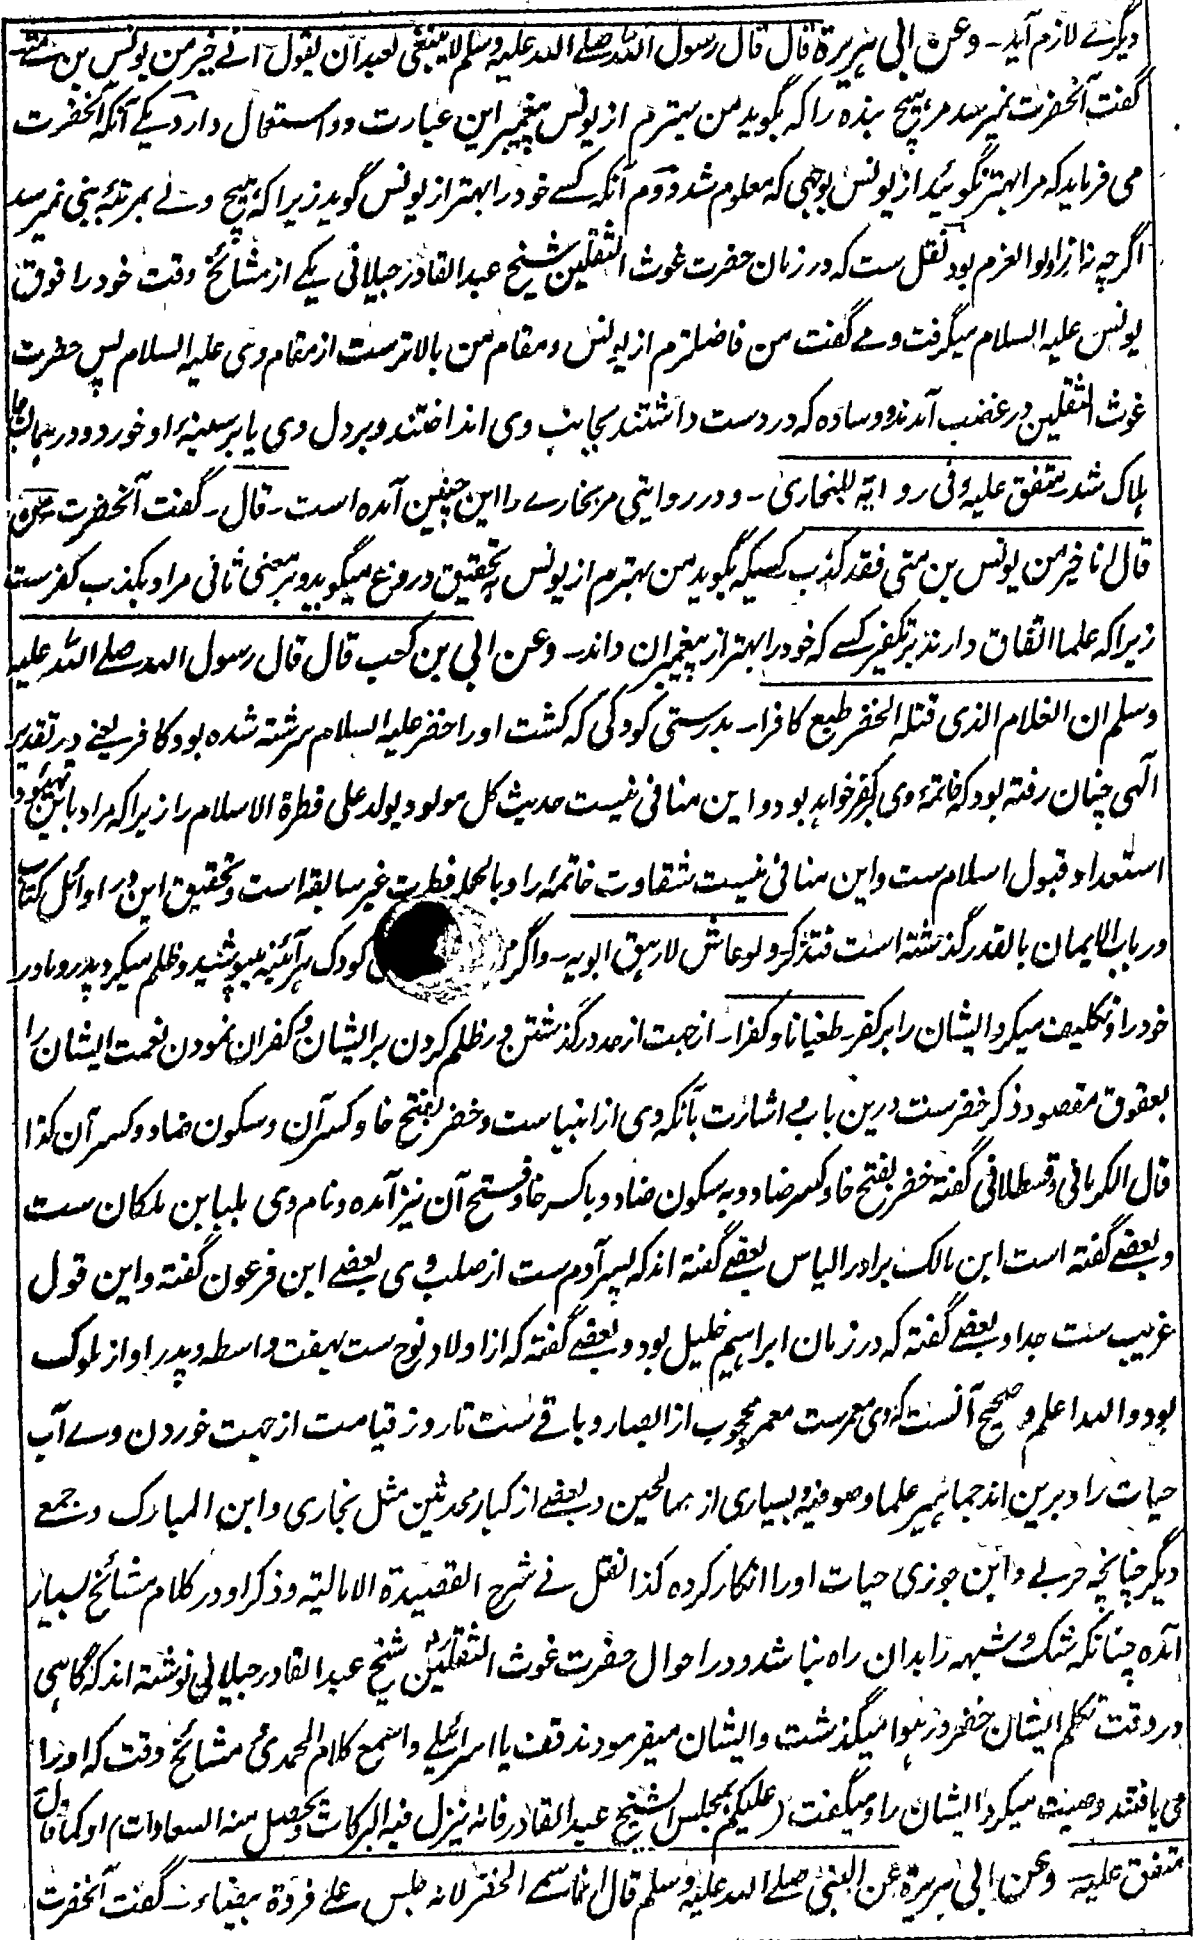 دیگرے لازم آید۔ وعن ابی ہریرة قال قال رسول اللہ صلے اللہ علیہ وسلم لا ینبغی لعبد ان یقول انے خیر من یونس بن متے
گفت آنحضرت نمیرسد مر ہیچ بندہ را کہ بگوید من بہترم از یونس پیغمبر این عبارت دو استعمال دارد یکے آنکہ آنحضرت
می فرماید کہ مرا بہتر نگوئید از یونس بوجہی کہ معلوم شد و دوم آنکہ کسے خود را بہتر از یونس گوید زیرا کہ ہیچ ولے بمرتبۂ نبی نمیرسد
اگر چہ نہ از اولوا العزم بود نقل ست کہ در زمان حضرت غوث الثقلین شیخ عبد القادر جیلانی یکے از مشائخ وقت خود را فوق
یونس علیہ السلام میگرفت و مے گفت من فاضلترم از یونس و مقام من بالاترست از مقام وی علیہ السلام پس حضرت
غوث الثقلین در غضب آمدند و وسادہ کہ در دست داشتند بجانب وی انداختند و بر دل وی یا بر سینۂ او خورد و در ہمانجا
ہلاک شد۔ متفق علیہ وفی روایة للبخاری۔ و در روایتی مر بخارے را این چنین آمدہ است۔ قال۔ گفت آنحضرت من
قال انا خیر من یونس بن متی فقد کذب کسیکہ بگوید من بہترم از یونس بتحقیق دروغ میگوید و بر معنی ثانی مراد بکذب کفرست
زیرا کہ علما اتفاق دارند بر تکفیر کسے کہ خود را بہتر از پیغمبران داند۔ وعن ابی بن کعب قال قال رسول اللہ صلے اللہ علیہ
وسلم ان الغلام الذی قتلہ الخضر طبع کافرا۔ بدرستی کودکی کہ کشت او را خضر علیہ السلام سرشتہ شدہ بود کافر یعنے در تقدیر
الٰہی چنان رفتہ بود کہ خاتمۂ وی بکفر خواہد بود و این منافی نیست حدیث کل مولود یولد علی فطرة الاسلام را زیرا کہ مراد باین
استعداد قبول اسلام ست و این منافی نیست شقاوت خاتمہ را و بالجملہ فطرت غیر سابقہ است و تحقیق این در اوائل کتاب
در باب الایمان بالقدر گذشتہ است فتذکر ولو عاش لارہق ابویہ۔ واگر کودک ہر آئینہ میپوشید و ظلم میکرد پدر و مادر
خود را و تکلیف میکرد ایشان را بر کفر۔ طغیانا وکفرا۔ از جہت از حد درگذشتن و ظلم کردن بر ایشان و کفران نمودن نعمت ایشان را
بعقوق مقصود ذکر خضرست درین باب اشارت بآنکہ وی از انبیاست و خضر بفتح خا و کسر آن و سکون ضاد و کسر آن کذا
قال الکرمانی و قسطلانی گفتہ خضر بفتح خا و کسر ضاد و بہ سکون ضاد و با کسر خا و فتح آن نیز آمدہ و نام وی بلیا بن ملکان ست
و بعضے گفتہ است ابن مالک برادر الیاس بعضے گفتہ اند کہ پسر آدم ست از صلب وی بعضے ابن فرعون گفتہ و این قول
غریب ست جدا و بعضے گفتہ کہ در زمان ابراہیم خلیل بود و بعضے گفتہ کہ از اولاد نوح ست بہفت واسطہ و پدر او از ملوک
بود واللہ اعلم و صحیح آنست کہ وی معمرست محجوب از ابصار و باقے ست تا روز قیامت از جہت خوردن وے آب
حیات را و برین اند جماہیر علما و صوفیہ و بسیاری از صالحین و بعضے از کبار محدثین مثل بخاری و ابن المبارک و جمعے
دیگر چنانچہ حربے و ابن جوزی حیات او را انکار کردہ کذا نقل فے شرح القصیدة الامالیة و ذکر او در کلام مشائخ بسیار
آمدہ چنانکہ شک و شبہہ را بدان راہ نباشد و در احوال حضرت غوث الثقلین شیخ عبد القادر جیلانی نوشتہ اند کہ گاہی
در وقت تکلم ایشان خضر در ہوا میگذشت و ایشان میفرمودند قف یا اسرائیلے واسمع کلام المحمدی مشائخ وقت کہ او را
می یافتند وصیت میکرد ایشان را و میگفت (علیکم بمجلس الشیخ عبد القادر فانہ ینزل فیہ البرکات و یحصل منہ السعادات) او کما قال
متفق علیہ۔ وعن ابی ہریرة عن النبی صلے اللہ علیہ وسلم قال انما سمے الخضر لانہ جلس علے فروة بیضاء۔ گفت آنحضرت